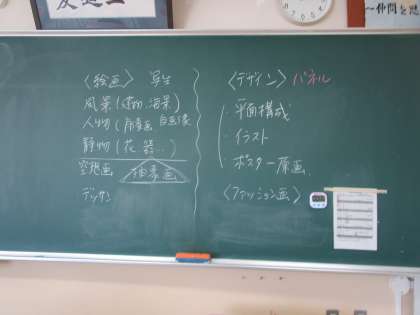 〈絵画〉 写生
風景(建物、海景)
人物(肖像画 自画像
静物(花 器...)
空想画 抽象画
デッサン
〈デザイン〉パネル
・平面構成
・イラスト
・ポスター原画
〈ファッション画〉
〜仲間を思